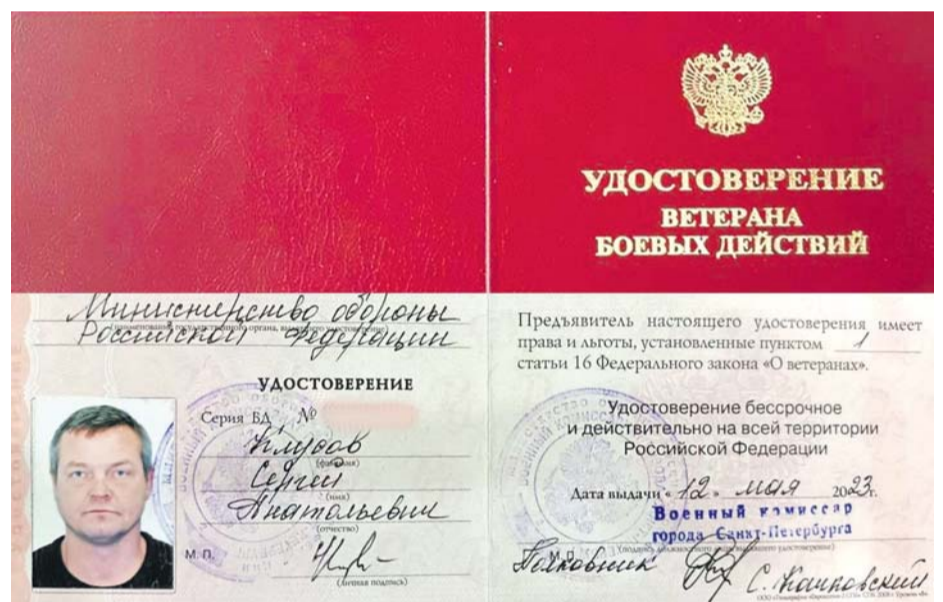 УДОСТОВЕРЕНИЕ
ВЕТЕРАНА
БОЕВЫХ ДЕЙСТВИЙ
Министерство обороны
(наименование государственного органа, выдавшего удостоверение)
Российской Федерации
УДОСТОВЕРЕНИЕ
Серия БД №
(фамилия)
Сергей
(имя)
Анатольевич
(отчество)
М. П.
(личная подпись)
Предъявитель настоящего удостоверения имеет
права и льготы, установленные пунктом 1
статьи 16 Федерального закона «О ветеранах».
Удостоверение бессрочное
и действительно на всей территории
Российской Федерации
Дата выдачи « 12 » мая 2023г.
Военный комиссар
города Санкт-Петербурга
М.П.
Полковник